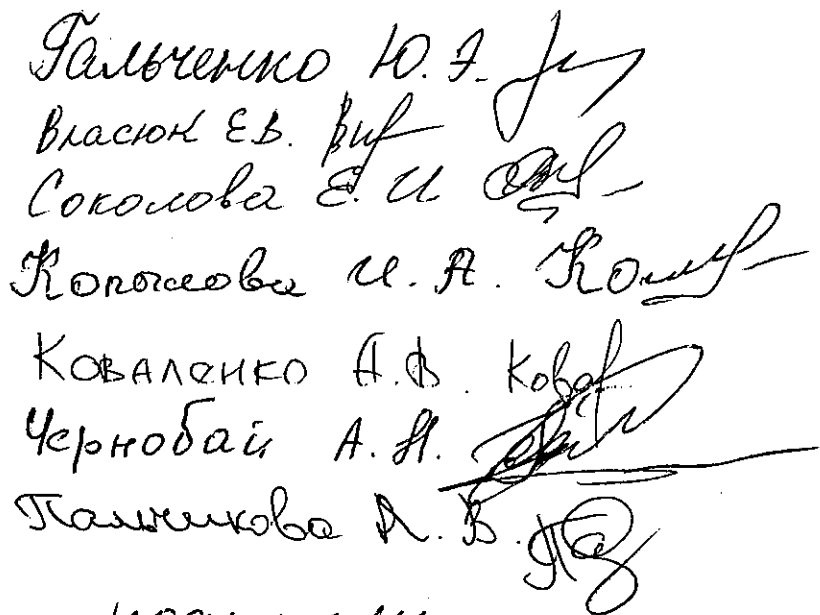 Гальченко Ю.Э.
Власюк Е.В.
Соколова Е.И
Копылова И.А.
Коваленко А.В. Кова
Чернобай А.Н.
Пальчикова А.В.